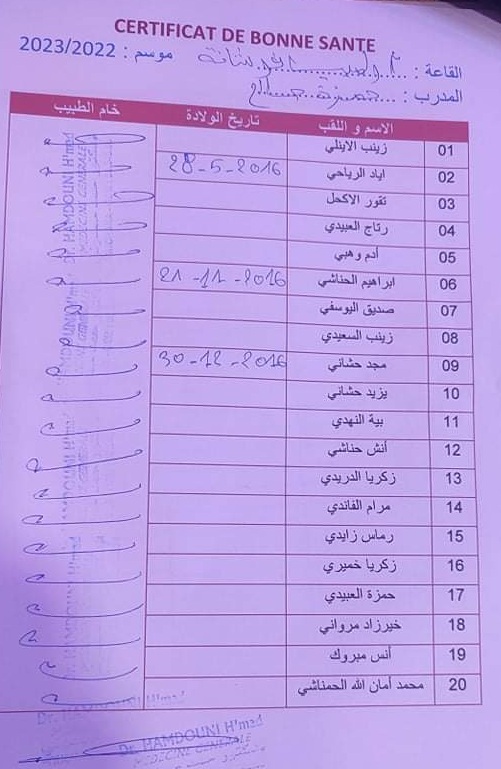 CERTIFICAT DE BONNE SANTE
القاعة : موسم : 2023/2022
المدرب : حمزة
الاسم و اللقب تاريخ الولادة خام الطبيب
01 زينب الايلي
02 اياد الرياحي 28-5-2016
03 تقور الاكحل
04 رتاج العبيدي
05 أدم وهبي
06 ابراهيم الحناشي 21-11-2016
07 صديق اليوسفي
08 زينب السعيدي
09 مجد حشاني 30-12-2016
10 يزيد حشاني
11 بية النهدي
12 أنش حناشي
13 زكريا الدريدي
14 مرام الفاندي
15 رماس زايدي
16 زكريا خميري
17 حمزة العبيدي
18 خيرزاد مرواني
19 أنس مبروك
20 محمد أمان الله الحمناشي
Dr. HAMDOUNI H'med
MEDECINE GENERALE